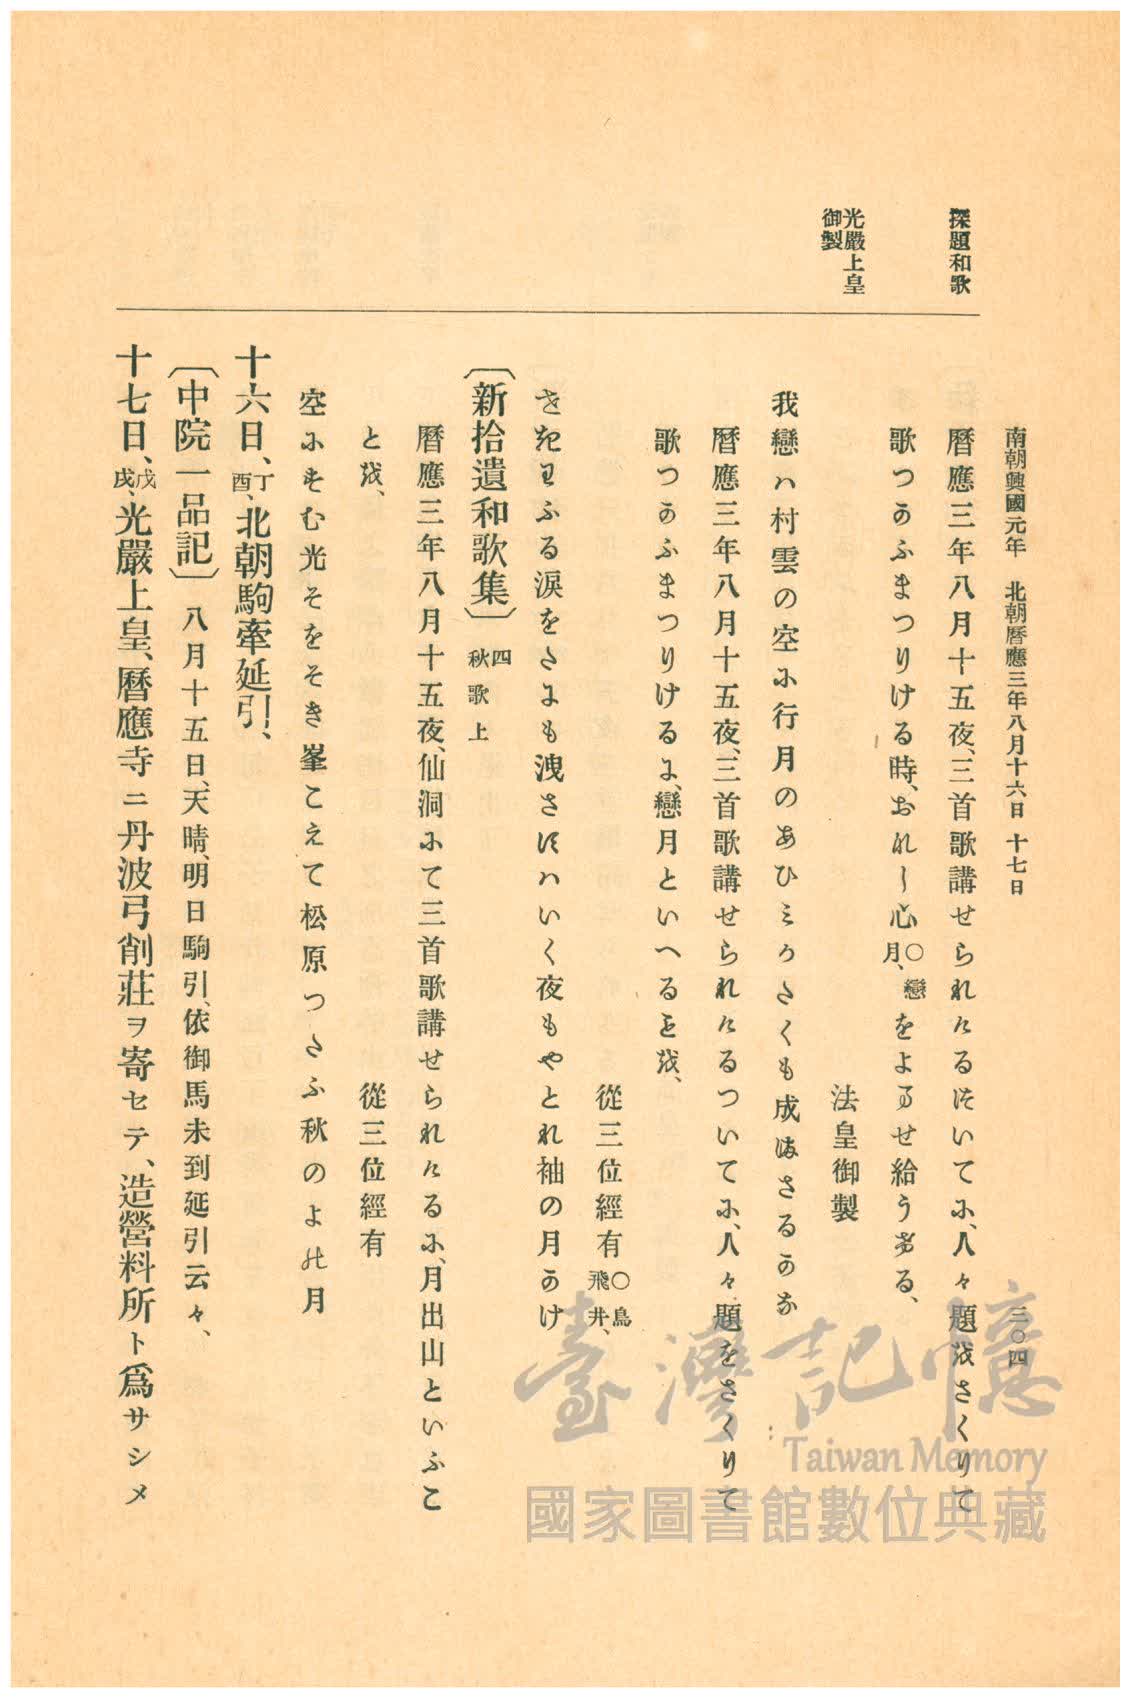 南朝興國元年　北朝曆應三年八月十六日　十七日　三〇四
探題和歌
曆應三年八月十五夜、三首歌講せられたるついてに、人々題をさくりて
歌つかふまつりける時、おなし心〇戀月、をよませ給うける、
光嚴上皇御製
法皇御製
我戀ハ村雲の空に行月のあひミかたくも成まさるかな
曆應三年八月十五夜、三首歌講せられたるついてに、人々題をさくりて
歌つかふまつりけるに、戀月といへることを、
從三位經有〇飛鳥井、
せきわふる涙をたにも洩さすハいく夜もやとれ袖の月かけ
〔新拾遺和歌集〕四秋歌上
曆應三年八月十五夜、仙洞にて三首歌講せられたるに、月出山といふこ
とを、
從三位經有
空にすむ光そをそき峯こえて松原つたふ秋のよの月
十六日、丁酉、北朝駒牽延引、
〔中院一品記〕八月十五日、天晴、明日駒引、依御馬未到延引云々、
十七日、戊戌、光嚴上皇、曆應寺ニ丹波弓削莊ヲ寄セテ、造營料所ト爲サシメ
臺灣記憶
Taiwan Memory
國家圖書館數位典藏